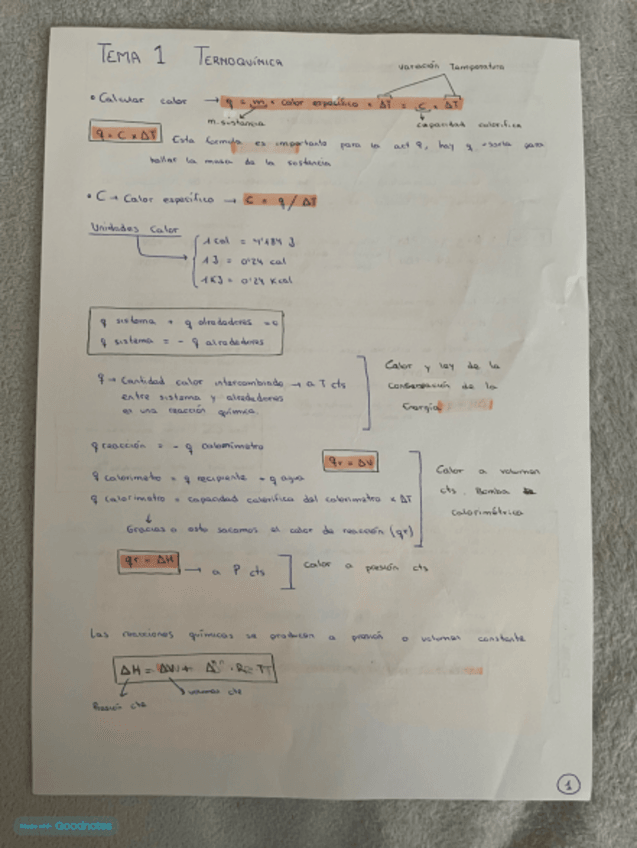 TEMA 1 TERMOQUÍMICA
variación Temperatura
• Calcular calor → q = m × calor específico × ΔT = C × ΔT
m. sustancia
capacidad calorífica
q = C × ΔT Esta formula es importante para la act 8, hay q para
hallar la masa de la sustancia
• C → Calor específico → C = q / ΔT
Unidades Calor
1 cal = 4'184 J
1 J = 0'24 cal
1 KJ = 0'24 Kcal
q sistema + q alrededores = 0
q sistema = - q alrededores
q → Cantidad calor intercambiado → a T cts
entre sistema y alrededores
en una reacción química.
Calor y ley de la
Conservación de la
Energía
q reacción = - q calorímetro
qr = ΔU
q calorimetro = q recipiente + q agua
q calorímetro = capacidad calorífica del calorímetro × ΔT
Gracias a esto sacamos el calor de reacción (qr)
Calor a volumen
cts. Bomba
calorimétrica
qr = ΔH → a P cts
Calor a presión cts
Las reacciones químicas se producen a presión o volumen constante
ΔH = ΔU + Δn · R · T
Presión cte
volumen cte
1
Made with Goodnotes